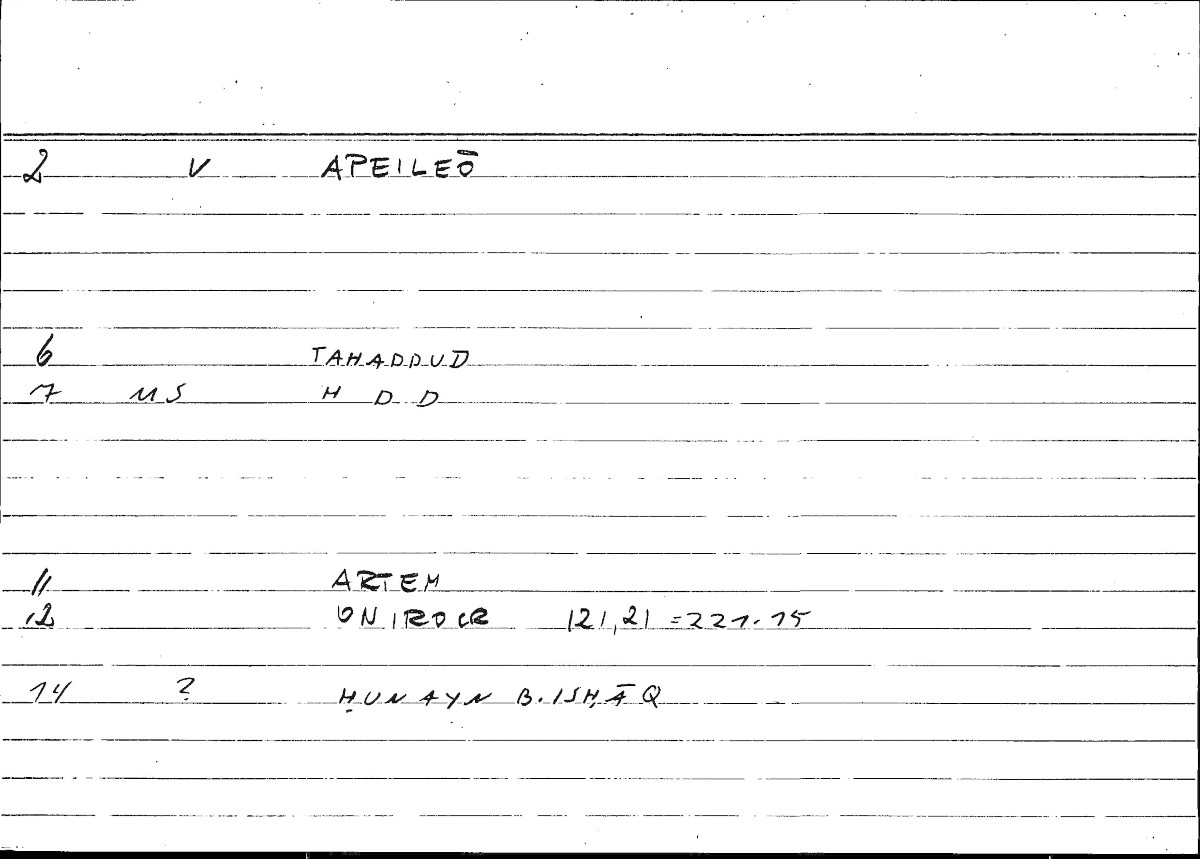 2 V APEILEŌ
6 TAHADDUD
7 MS H D D
11 ARTEM
12 ONIROCR 121,21 = 221.15
14 ? ḤUNAYN B. ISḤĀQ